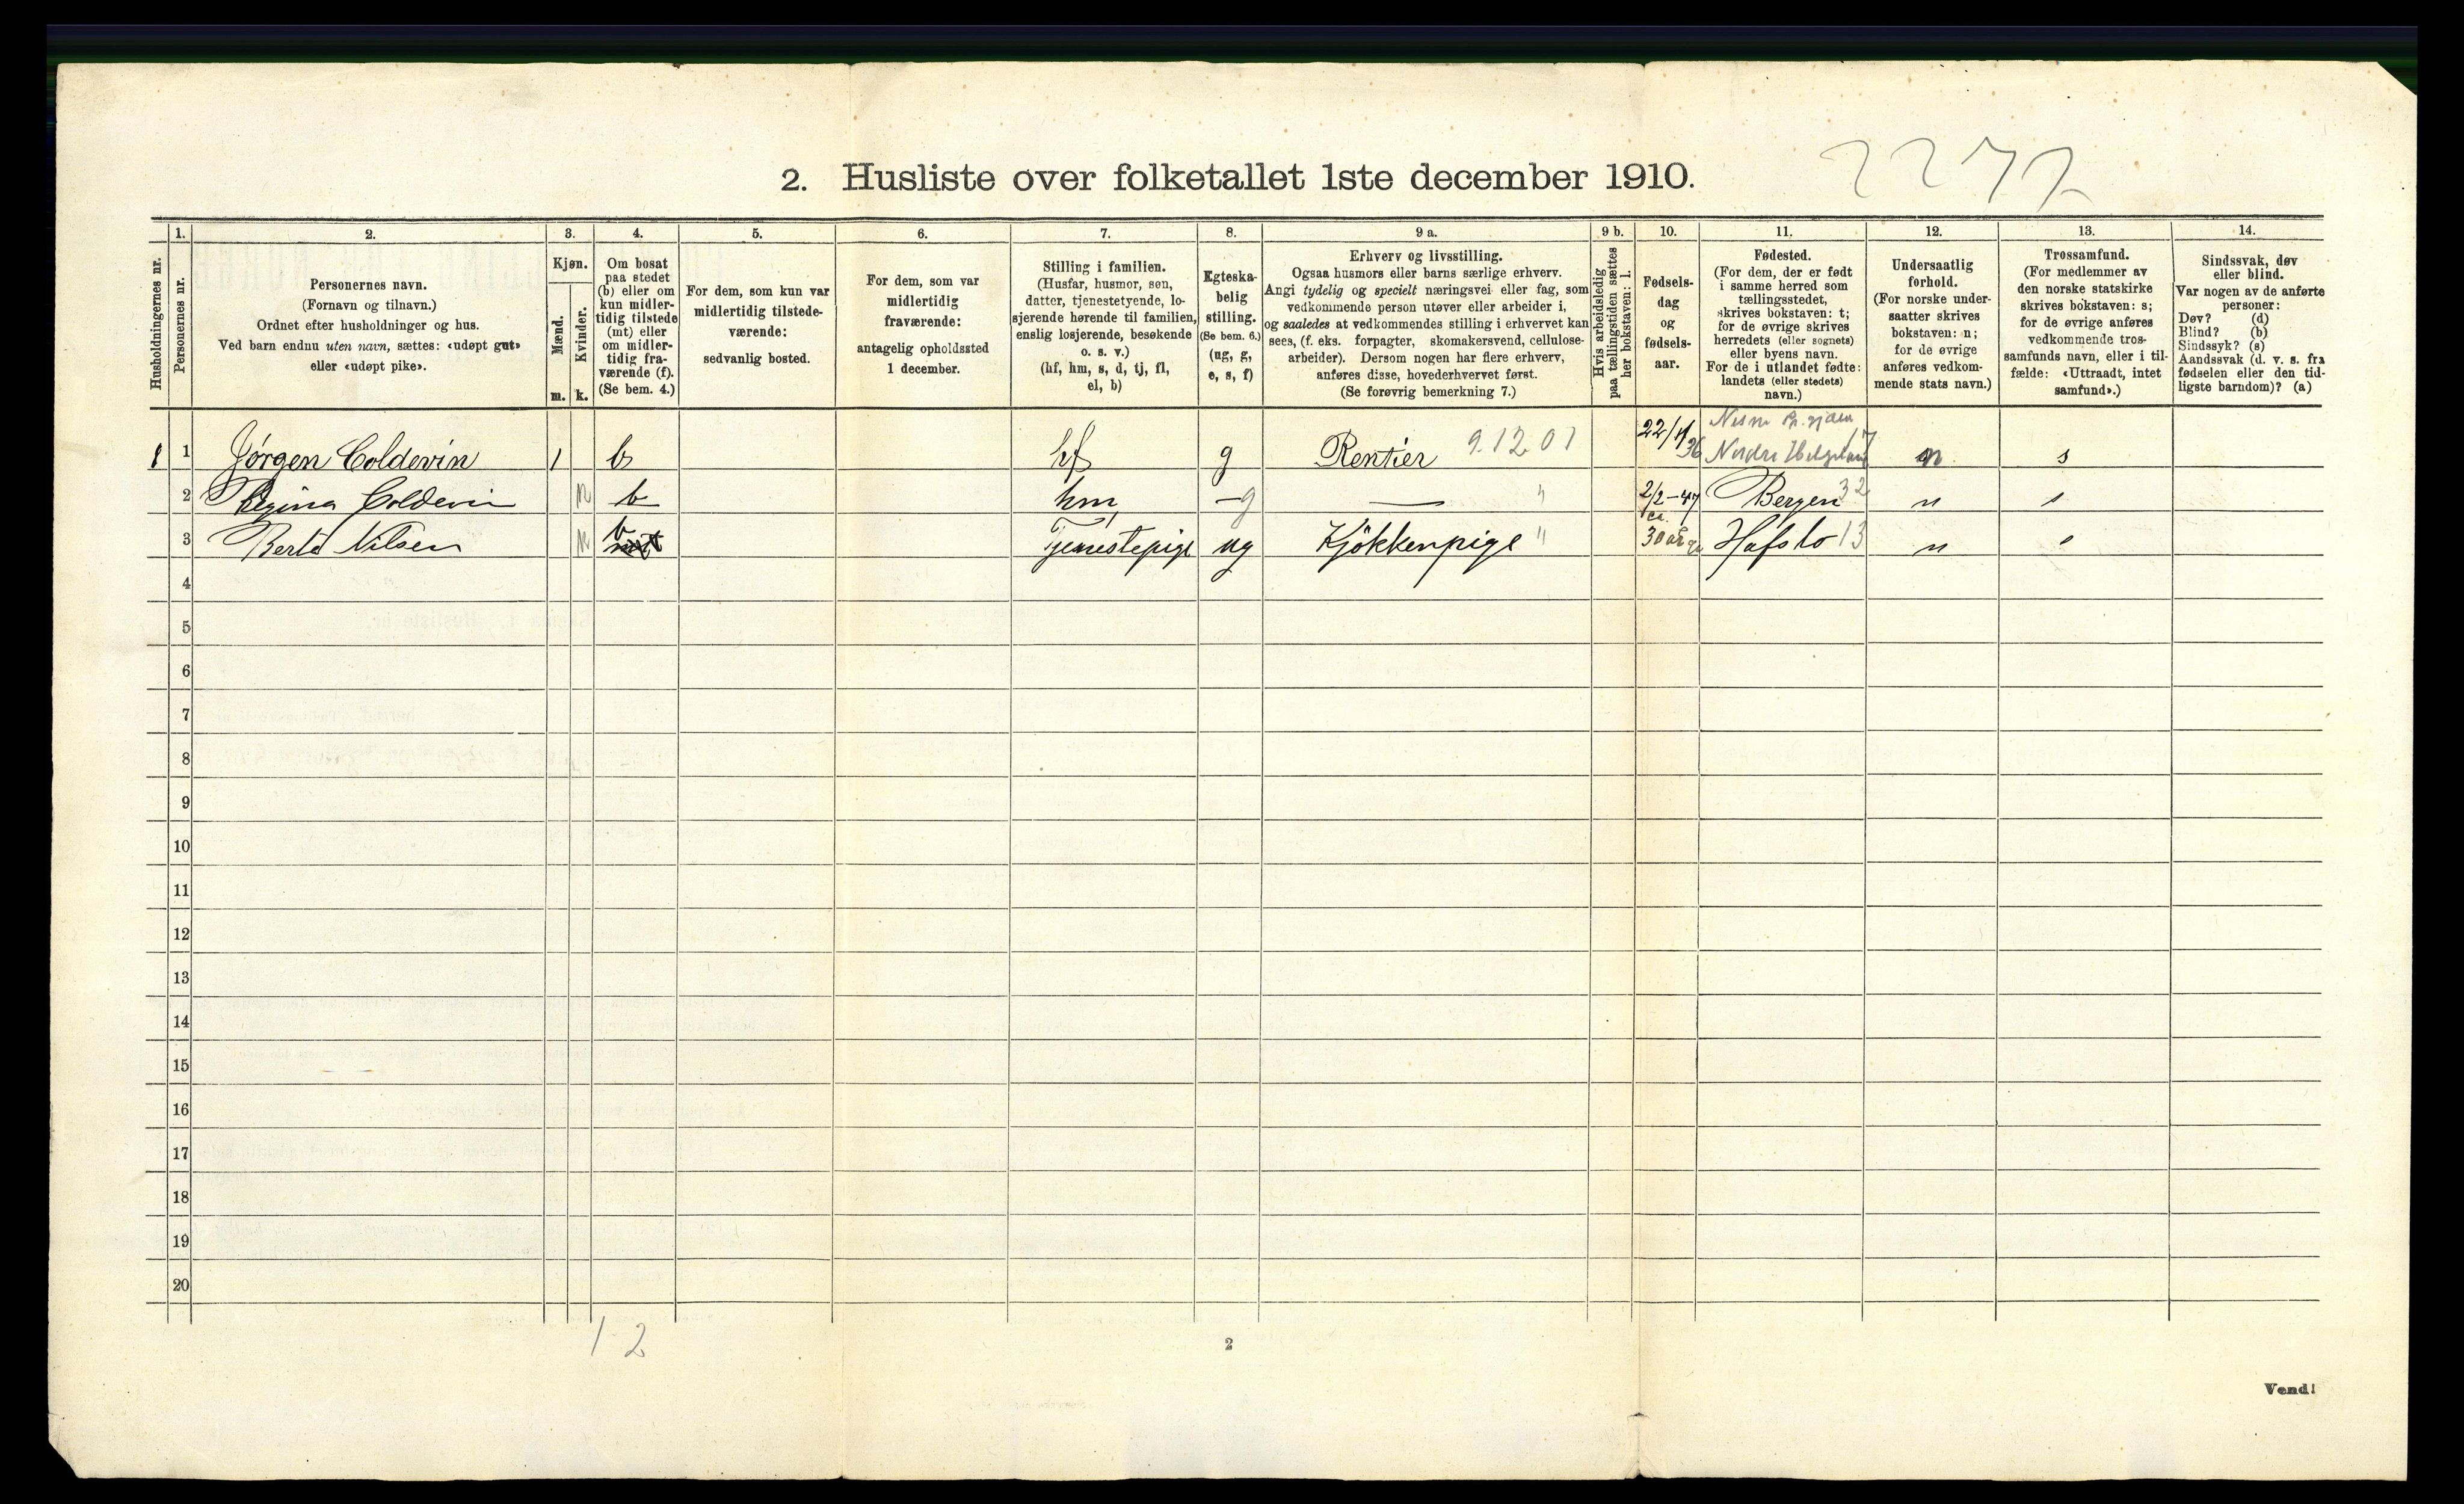 2272
2. Husliste over folketallet 1ste december 1910.
Husholdningernes nr.
1.
Personernes nr.
2.
Personernes navn.
(Fornavn og tilnavn.)
Ordnet efter husholdninger og hus.
Ved barn endnu uten navn, sættes: «udøpt gut»
eller «udøpt pike».
3.
Kjøn.
Mænd.
Kvinder.
m. k.
4.
Om bosat
paa stedet
(b) eller om
kun midler-
tidig tilstede
(mt) eller
om midler-
tidig fra-
værende (f).
(Se bem. 4.)
5.
For dem, som kun var
midlertidig tilstede-
værende:
sedvanlig bosted.
6.
For dem, som var
midlertidig
fraværende:
antagelig opholdssted
1 december.
7.
Stilling i familien.
(Husfar, husmor, søn,
datter, tjenestetyende, lo-
sjerende hørende til familien,
enslig losjerende, besøkende
o. s. v.)
(hf, hm, s, d, tj, fl,
el, b)
8.
Egteska-
belig
stilling.
(Se bem. 6.)
(ug, g,
e, s, f)
9 a.
Erhverv og livsstilling.
Ogsaa husmors eller barns særlige erhverv.
Angi tydelig og specielt næringsvei eller fag, som
vedkommende person utøver eller arbeider i,
og saaledes at vedkommendes stilling i erhvervet kan
sees, (f. eks. forpagter, skomakersvend, cellulose-
arbeider). Dersom nogen har flere erhverv,
anføres disse, hovederhvervet først.
(Se forøvrig bemerkning 7.)
9 b.
Hvis arbeidsledig
paa tællingstiden sættes
her bokstaven: l.
10.
Fødsels-
dag
og
fødsels-
aar.
11.
Fødested.
(For dem, der er født
i samme herred som
tællingsstedet,
skrives bokstaven: t;
for de øvrige skrives
herredets (eller sognets)
eller byens navn.
For de i utlandet fødte:
landets (eller stedets)
navn.)
12.
Undersaatlig
forhold.
(For norske under-
saatter skrives
bokstaven: n;
for de øvrige
anføres vedkom-
mende stats navn.)
13.
Trossamfund.
(For medlemmer av
den norske statskirke
skrives bokstaven: s;
for de øvrige anføres
vedkommende tros-
samfunds navn, eller i til-
fælde: «Uttraadt, intet
samfund».)
14.
Sindssvak, døv
eller blind.
Var nogen av de anførte
personer:
Døv? (d)
Blind? (b)
Sindssyk? (s)
Aandssvak (d. v. s. fra
fødselen eller den tid-
ligste barndom)? (a)
1 1 Jørgen Coldevin 1 b hf g Rentier 9.12.01 22/4 36 Nesne Nordre Helgeland 17 n s
2 Regina Coldevin k b hm – g — " 2/2-47 Bergen 32 n s
3 Berte Nilsen k b mt Tjenestepige ug Kjøkkenpige " ca. 30 år Hafslo 13 n s
4
5
6
7
8
9
10
11
12
13
14
15
16
17
18
19
20
1 2
2
Vend!